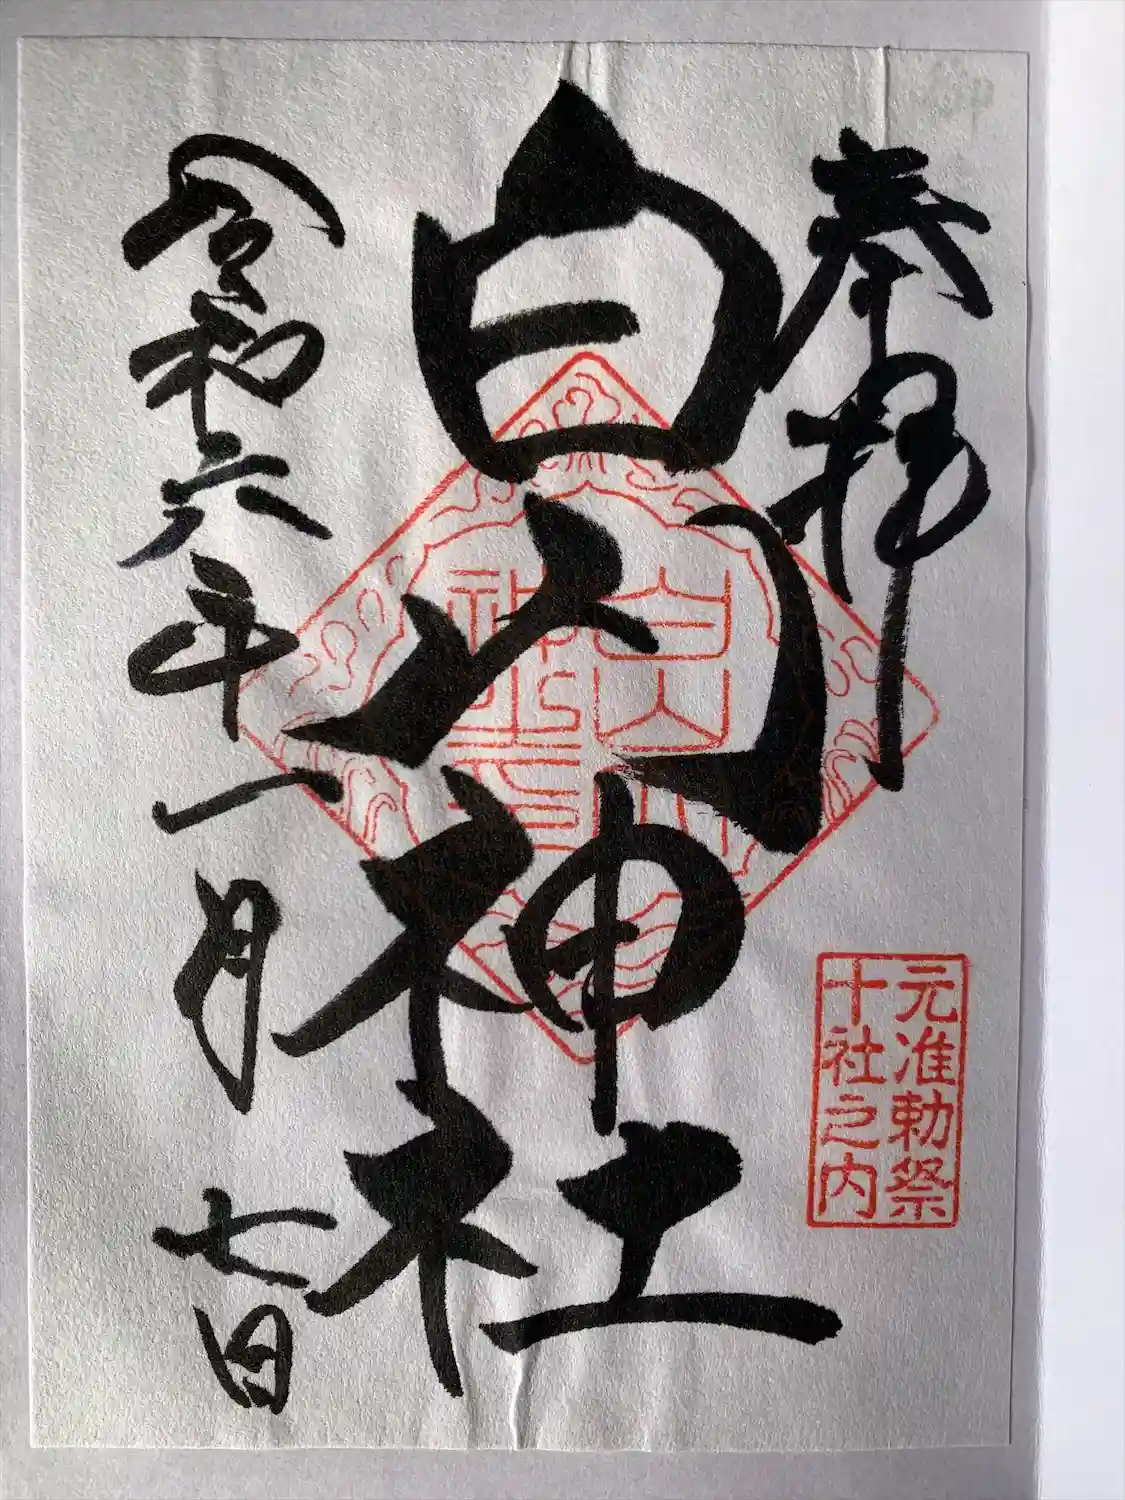 奉拝
元准勅祭
十社之内
白山神社
白山
神社
令和六年一月七日